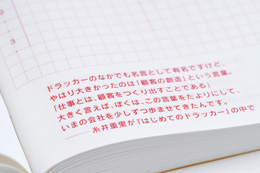 ドラッカーのなかでも名言として有名ですけど、
やはり大きかったのは「顧客の創造」という言葉。
「仕事とは、顧客をつくり出すことである」
大きく言えば、ぼくは、この言葉をたよりにして、
いまの会社を少しずつ歩ませてきたんです。
――糸井重里が「はじめてのドラッカー」の中で